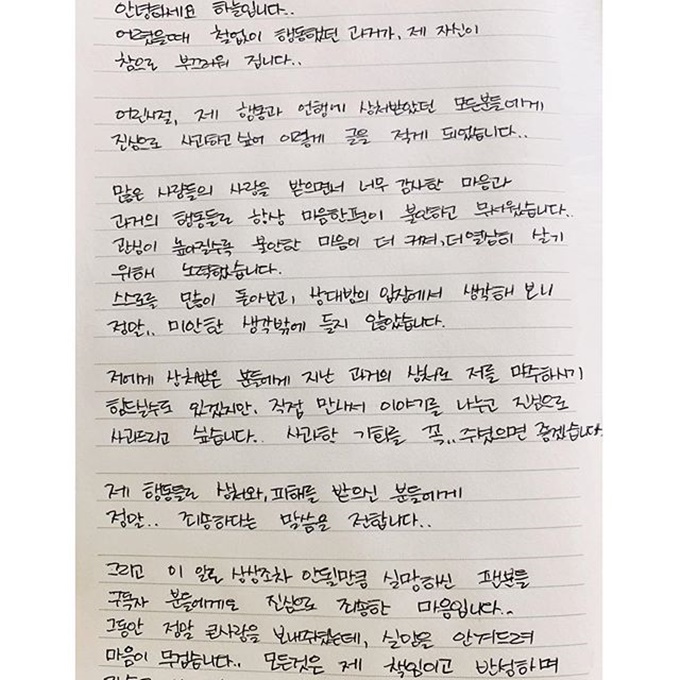 안녕하세요 하늘입니다..
어렸을때 철없이 행동했던 과거가, 제 자신이
참으로 부끄러워 집니다..
어린시절, 제 행동과 언행에 상처받았던 모든분들에게
진심으로 사과하고 싶어 이렇게 글을 적게 되었습니다..
많은 사람들의 사랑을 받으면서 너무 감사한 마음과
과거의 행동들로 항상 마음한편이 불안하고 무서웠습니다..
관심이 높아질수록 불안한 마음이 더 커져, 더 열심히 살기
위해 노력했습니다.
스스로를 많이 돌아보고, 상대방의 입장에서 생각해 보니
정말.. 미안한 생각밖에 들지 않았습니다.
저에게 상처받은 분들에게 지난 과거의 상처로 저를 마주하시기
힘드실수도 있겠지만, 직접 만나서 이야기를 나누고 진심으로
사과드리고 싶습니다.. 사과할 기회를 꼭.. 주셨으면 좋겠습니다.
제 행동들로 상처와, 피해를 받으신 분들에게
정말.. 죄송하다는 말씀을 전합니다..
그리고 이 일로 상상조차 안될만큼 실망하신 팬분들
구독자 분들에게도 진심으로 죄송한 마음입니다..
그동안 정말 큰사랑을 보내주셨는데, 실망을 안겨드려
마음이 무겁습니다.. 모든것은 제 책임이고 반성하며